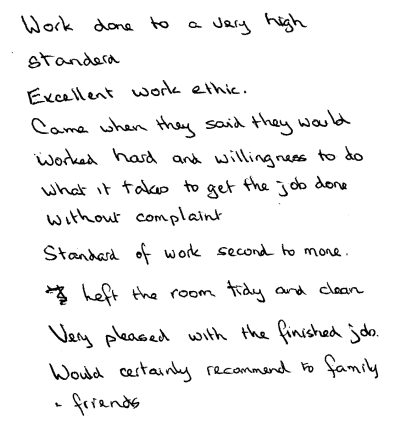 Work done to a very high
standerd
Excellent work ethic.
Came when they said they would
worked hard and willingness to do
what it takes to get the job done
without complaint
Standard of work second to none.
Left the room tidy and clean
Very pleased with the finished job.
Would certainly recommend to family
+ friends